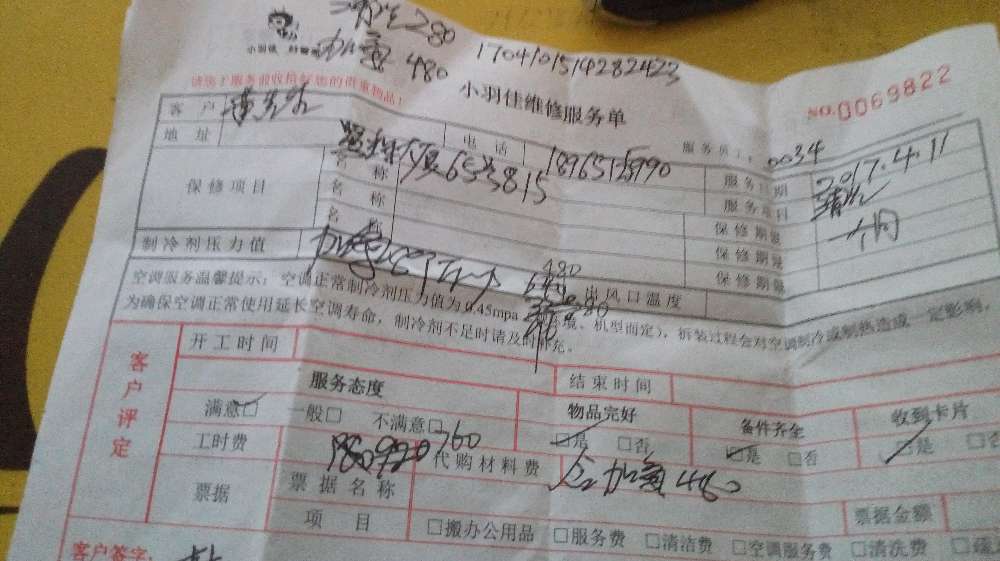 清洗280
加氟 480
17041015114282423
小羽佳
请您!服务前收拾好您的贵重物品!
小羽佳维修服务单
NO.0069822
客户
服务员工: 0034
地址 电话 18965125990
服务日期 2017.4.11
保修项目 名称
服务项目 清洗
名称 保修期限 一个月
名称 保修期限
制冷剂压力值 480 出风口温度 保修期限
空调服务温馨提示:空调正常制冷剂压力值为0.45mpa 环境、机型而定),拆装过程会对空调制冷或制热造成一定影响,
为确保空调正常使用延长空调寿命,制冷剂不足时请及时补充。
客户评定
开工时间 结束时间
服务态度 物品完好 备件齐全 收到卡片
满意□ 一般□ 不满意□ □是 □否 □是 □否 □是 □否
工时费 760 代购材料费 加氟 480
票据 票据名称 票据金额
项目 □搬办公用品 □服务费 □清洁费 □空调服务费 □清洗费
客户签字: